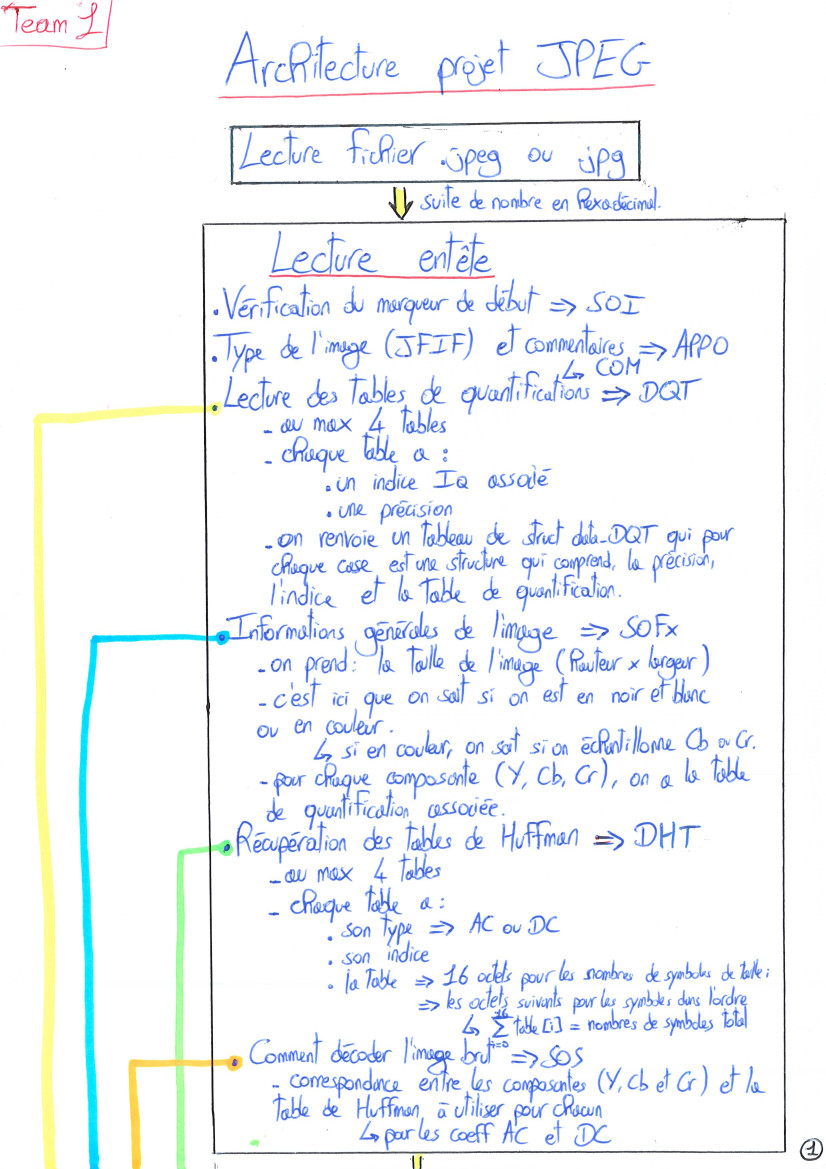 Team 1
Architecture projet JPEG
Lecture fichier .jpeg ou .jpg
suite de nombre en hexadécimal.
Lecture entête
. Vérification du marqueur de début => SOI
. Type de l'image (JFIF) et commentaires => APPO
↳ COM
. Lecture des tables de quantifications => DQT
- au max 4 tables
- chaque table a :
. un indice IQ associé
. une précision
- on renvoie un tableau de struct data_DQT qui pour
chaque case est une structure qui comprend, la précision,
l'indice et la table de quantification.
. Informations générales de l'image => SOFx
- on prend : la taille de l'image (hauteur x largeur)
- c'est ici que on sait si on est en noir et blanc
ou en couleur.
↳ si en couleur, on sait si on échantillonne Cb ou Cr.
- pour chaque composante (Y, Cb, Cr), on a la table
de quantification associée.
. Récupération des tables de Huffman => DHT
- au max 4 tables
- chaque table a :
. son type => AC ou DC
. son indice
. la table => 16 octets pour les nombres de symboles de taille i
=> les octets suivants pour les symboles dans l'ordre
↳ 16 ∑ i=0 table [i] = nombres de symboles total
. Comment décoder l'image brut => SOS
- correspondance entre les composantes (Y, Cb et Cr) et la
table de Huffman, à utiliser pour chacun
↳ par les coeff AC et DC
1